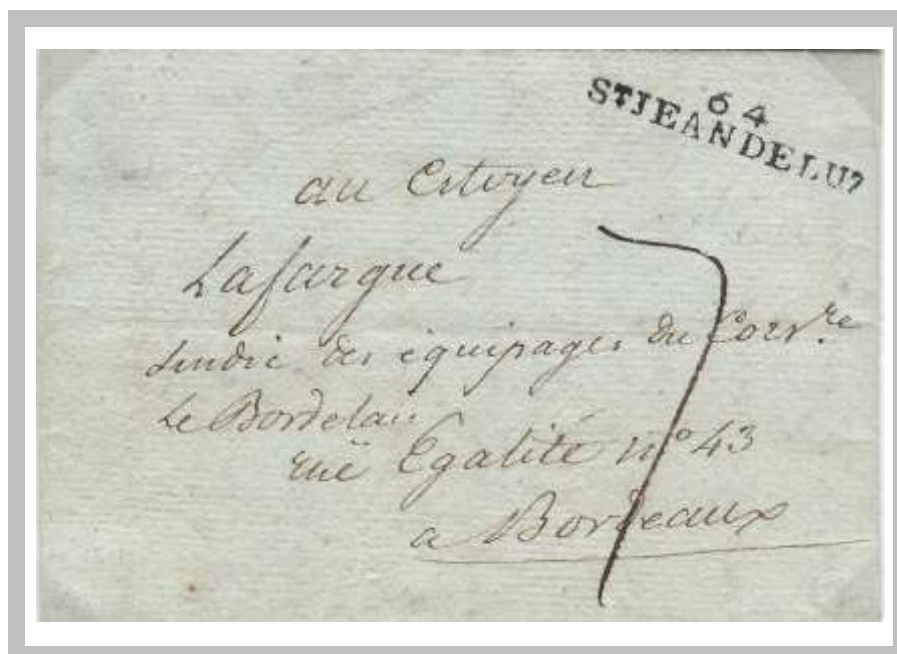 64
STJEANDELUZ
au Citoyen
Lafargue
Sindic des équipages du Cors.re
Le Bordelais
ruë Egalité n° 43
a Bordeaux
7